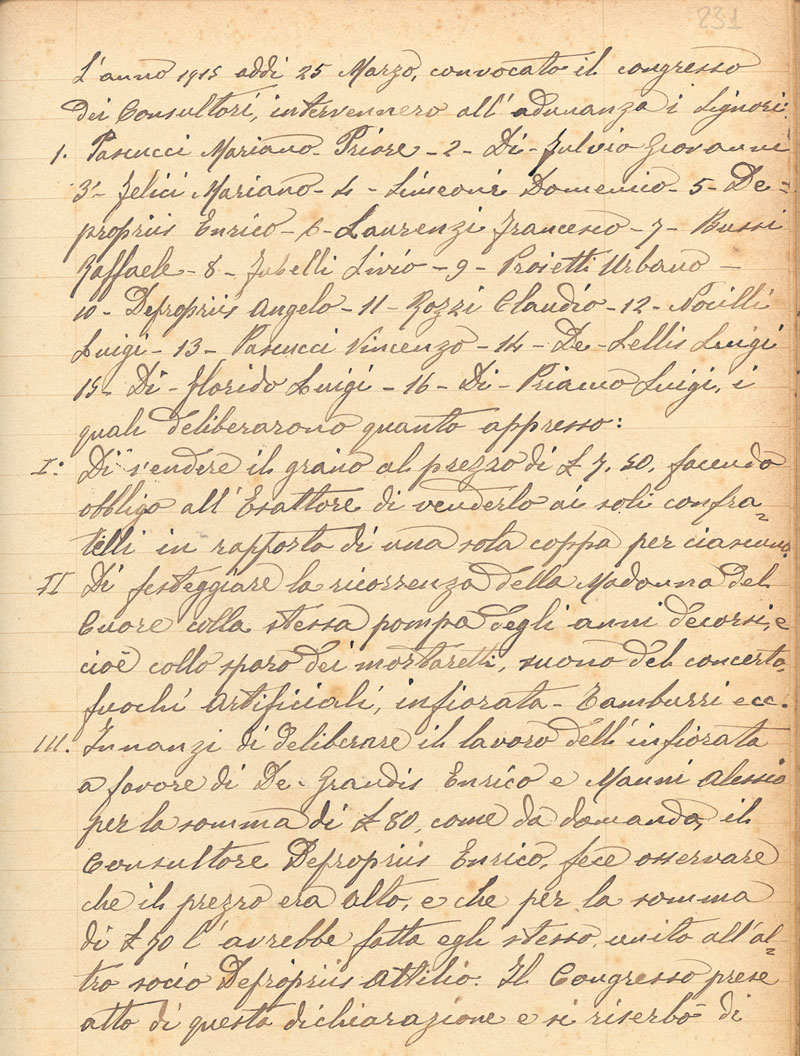 231
L'anno 1915 addi 25 Marzo, convocato il congresso
dei Consultori, intervennero all'adunanza i Signori:
1. Pascucci Mariano - Priore - 2 - Di - Fulvio Giovanni
3 - Felici Mariano - 4 - Simeoni Domenico - 5 - De=
propriis Enrico - 6 - Laurenzi Francesco - 7 - Bussi
Raffaele - 8 - Livio - 9 - Proietti Urbano -
10 - Depropriis Angelo - 11 - Rozzi Claudio - 12 - Nocilli
Luigi - 13 - Pascucci Vincenzo - 14 - De - Lellis Luigi
15 - Di - Florido Luigi - 16 - Di - Priamo Luigi, i
quali deliberarono quanto appresso:
I.° Di vendere il grano al prezzo di £ 7,50, facendo
obbligo all'Esattore di venderlo ai soli confra=
telli in rapporto di una sola coppa per ciascuno.
II Di festeggiare la ricorrenza della Madonna del
Cuore colla stessa pompa degli anni decorsi, e
cioè collo sparo dei mortaretti, suono del concerto,
fuochi artificiali, infiorata - Tamburri ecc.
III. Innanzi di deliberare il lavoro dell'infiorata
a favore di De - Grandis Enrico e Manni Alessio
per la somma di £ 80, come da domanda, il
Consultore Depropriis Enrico, fece osservare
che il prezzo era alto, e che per la somma
di £ 70 l'avrebbe fatta egli stesso, unito all'al=
tro socio Depropriis Attilio. Il Congresso prese
atto di questa dichiarazione e si riserbò di